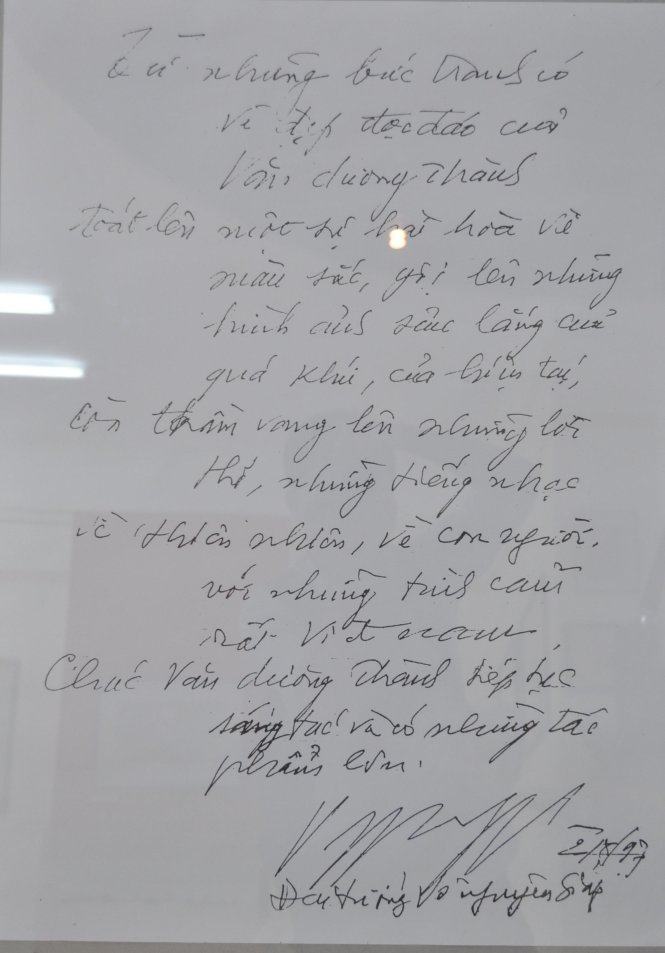 Từ những bức tranh có
vẻ đẹp độc đáo của
Văn dương Thành
toát lên một sự hài hoà về
màu sắc, gợi lên những
hình ảnh sâu lắng của
quá khứ, của hiện tại,
còn thầm vang lên những lời
thơ, những tiếng nhạc
về thiên nhiên, về con người.
với những tình cảm
rất Việt nam.
Chúc Văn dương Thành tiếp tục
sáng tác và có những tác
phẩm lớn.
Đại tướng Võ nguyên Giáp